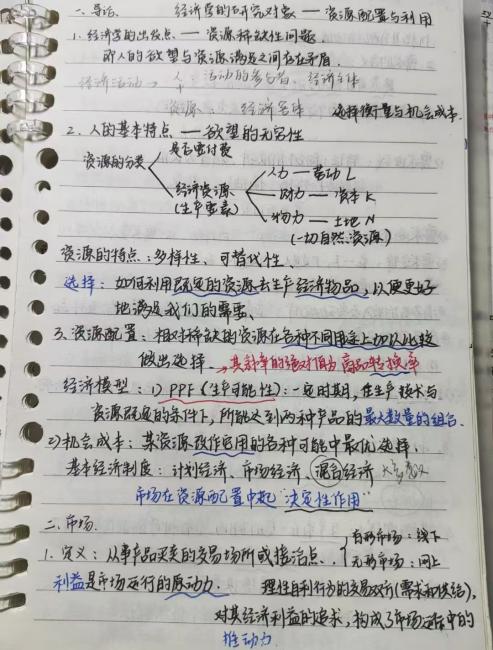 一、导论. 经济学的研究对象 — 资源配置与利用
1. 经济学的出发点 — 资源稀缺性问题
即人的欲望与资源满足之间存在矛盾.
经济活动 → 人:活动的参与者、经济主体
资源: 经济客体 选择衡量与机会成本.
2. 人的基本特点 — 欲望的无穷性
是否需付费
资源的分类
经济资源
(生产要素)
人力 — 劳动 L
财力 — 资本 K
物力 — 土地 N
(一切自然资源)
资源的特点:多样性、可替代性.
选择:如何利用既定的资源去生产经济物品,以便更好
地满足我们的需要.
3. 资源配置:相对稀缺的资源在各种不同用途上加以比较
做出选择. → 其斜率的绝对值为商品转换率
经济模型:1) PPF(生产可能性):一定时期,在生产技术与
资源既定的条件下,所能达到两种产品的最大数量的组合.
2)机会成本:某资源改作它用的各种可能中最优选择.
基本经济制度:计划经济、市场经济、混合经济
市场在资源配置中起“决定性作用”
二、市场.
1. 定义:从事产品买卖的交易场所或接洽点.
有形市场:线下
无形市场:网上
利益是市场运行的原动力. 理性自利行为的交易双方(需求和供给),
对其经济利益的追求,构成了市场运行中的
推动力.